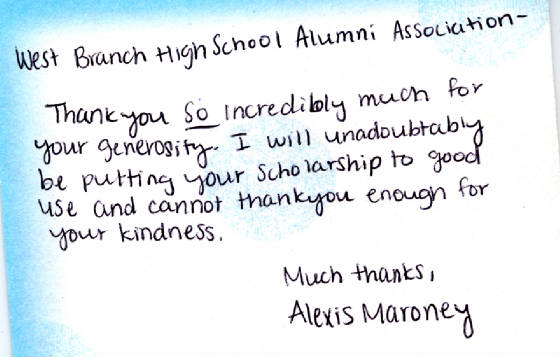 West Branch High School Alumni Association-
Thank you So incredibly much for
your generosity. I will unadoubtably
be putting your scholarship to good
use and cannot thankyou enough for
your kindness.
Much thanks,
Alexis Maroney